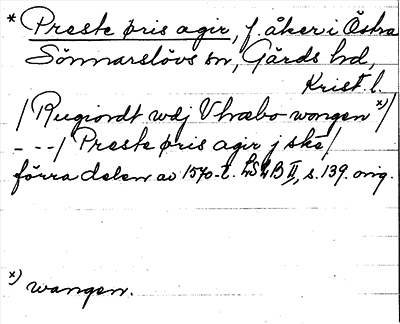 * Preste øris agir, f. åker i Östra
Sönnarslövs sn, Gärds hd,
Krist. l.
/ Rugiordt wdj Vhræbo wongen x)/
- - -/ Preste øris agir j ske/
förra delen av 1570-t. LSLB II, s. 139. orig.
x) wangen.